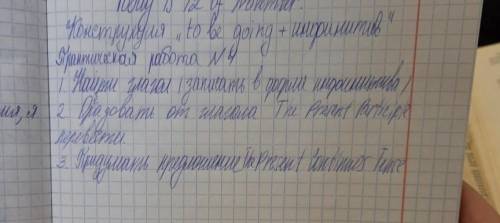 is 12 of
Конструкция „to be going + инфинитив"
Практическая работа №4
1. Найти глагол (записать в форме инфинитива)
2. Образовать от глагола The Present Participle
перевести.
3. Придумать предложение The Present Continues Tense